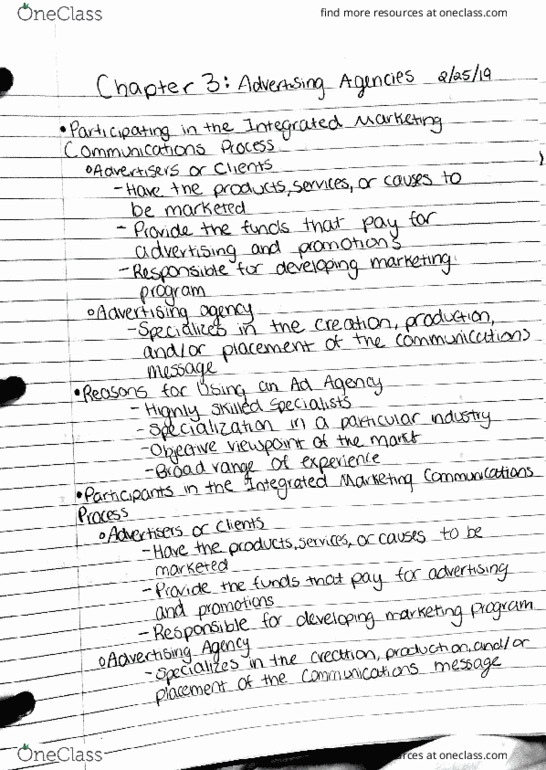 OneClass
find more resources at oneclass.com
Chapter 3: Advertising Agencies 2/25/19
• Participating in the Integrated Marketing
Communications Process
o Advertisers or Clients
- Have the products, services, or causes to
be marketed
- Provide the funds that pay for
advertising and promotions
- Responsible for developing marketing
program
o Advertising agency
- Specializes in the creation, production,
and/or placement of the communications
message
• Reasons for Using an Ad Agency
- Highly skilled specialists
- Specialization in a particular industry
- Objective viewpoint of the markt
- Broad range of experience
• Participants in the Integrated Marketing Communications
Process
o Advertisers or Clients
- Have the products, services, or causes to be
marketed
- Provide the funds that pay for advertising
and promotions
- Responsible for developing marketing program
o Advertising Agency
- Specializes in the creation, production, and/or
placement of the communications message
OneClass
at oneclass.com